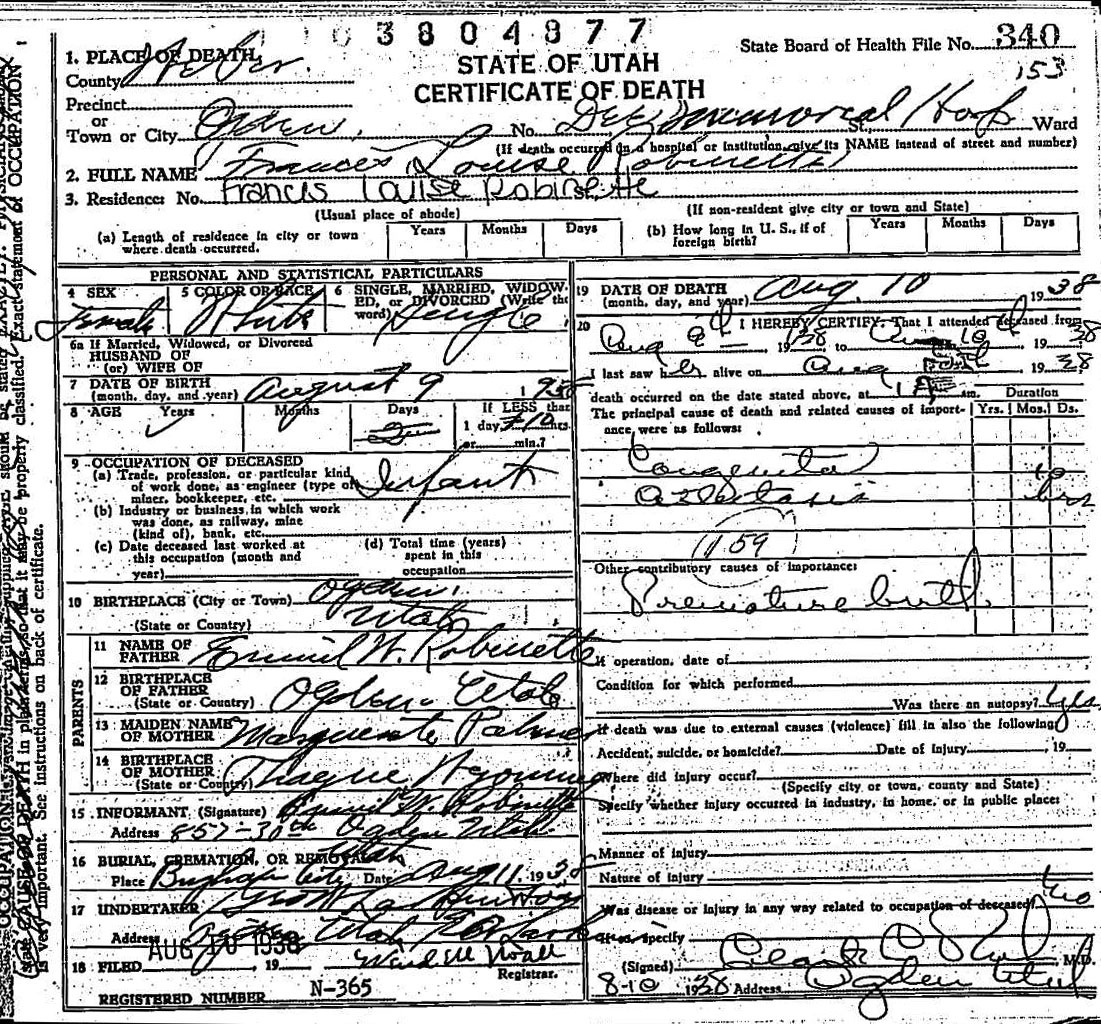 3804877
State Board of Health File No. 340
153
STATE OF UTAH
CERTIFICATE OF DEATH
1. PLACE OF DEATH
County Weber.
Precinct
or
Town or City Ogden, No. Dee Memorial Hosp St., Ward
(If death occurred in a hospital or institution, give its NAME instead of street and number)
2. FULL NAME Frances Louise Robinette
3. Residence: No. Francis Louise Robinette
(Usual place of abode) (If non-resident give city or town and State)
(a) Length of residence in city or town where death occurred. Years Months Days
(b) How long in U. S., if of foreign birth? Years Months Days
PERSONAL AND STATISTICAL PARTICULARS
4 SEX Female
5 COLOR OR RACE White
6 SINGLE, MARRIED, WIDOWED, or DIVORCED (Write the word) Single
6a If Married, Widowed, or Divorced
HUSBAND OF
(or) WIFE OF
7 DATE OF BIRTH
(month, day, and year) August 9 1938
8 AGE Years Months Days
If LESS than
1 day, 10 hrs.
or min.?
9 OCCUPATION OF DECEASED
(a) Trade, profession, or particular kind
of work done, as engineer (type of
miner, bookkeeper, etc. Infant
(b) Industry or business in which work
was done, as railway, mine
(kind of), bank, etc.
(c) Date deceased last worked at
this occupation (month and
year)
(d) Total time (years)
spent in this
occupation
10 BIRTHPLACE (City or Town) Ogden,
(State or Country) Utah
PARENTS
11 NAME OF
FATHER Emil W. Robinette
12 BIRTHPLACE
OF FATHER
(State or Country) Ogden Utah
13 MAIDEN NAME
OF MOTHER Marguerite Palmer
14 BIRTHPLACE
OF MOTHER
(State or Country) Thayne Wyoming
15 INFORMANT (Signature) Emil W. Robinette
Address 857-30th Ogden Utah.
16 BURIAL, CREMATION, OR REMOVAL
Utah
Place Brigham City Date Aug 11, 1938
17 UNDERTAKER
Address Ogden Utah
AUG 10 1938
18 FILED 19
Registrar.
REGISTERED NUMBER N-365
19 DATE OF DEATH
(month, day, and year) Aug. 10 1938
20 I HEREBY CERTIFY, That I attended deceased from
Aug 9th 1938 to Aug 10 1938
I last saw her alive on Aug 1938
death occurred on the date stated above, at 1 A m.
The principal cause of death and related causes of importance, were as follows:
Duration
Yrs. Mos. Ds.
Congenital
Atelectasis 10 hrs
159
Other contributory causes of importance:
Premature birth.
If operation, date of
Condition for which performed
Was there an autopsy? Yes
If death was due to external causes (violence) fill in also the following
Accident, suicide, or homicide? Date of injury , 19
Where did injury occur?
(Specify city or town, county and State)
Specify whether injury occurred in industry, in home, or in public place:
Manner of injury
Nature of injury
Was disease or injury in any way related to occupation of deceased? No
If so, specify
(Signed) M.D.
8-10 1938 Address Ogden Utah
is very important. See instructions on back of certificate.